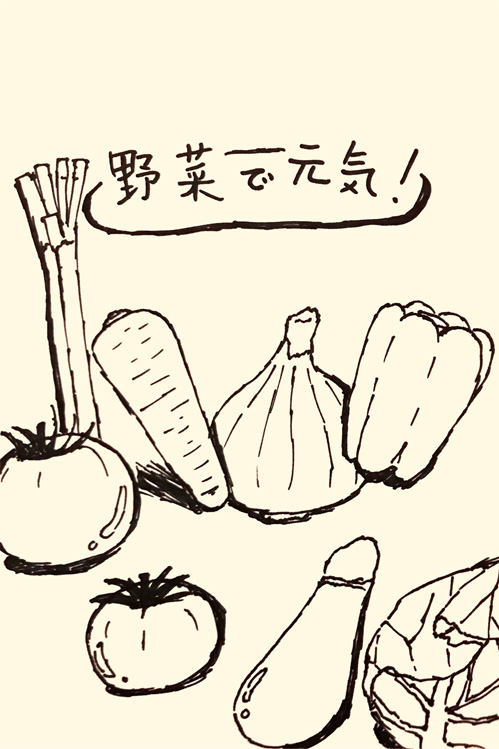 野菜で元気!